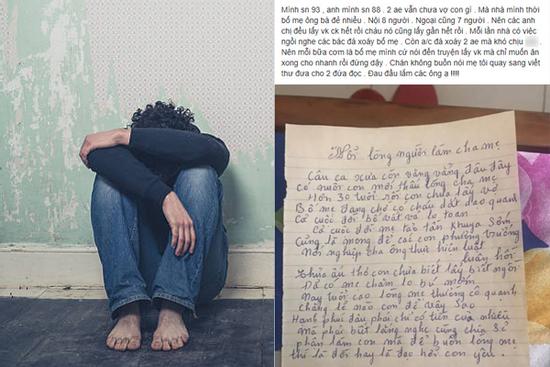 Mình sn 93 , anh mình sn 88 . 2 ae vẫn chưa vợ con gì . Mà nhà mình thời
bố mẹ ông bà đẻ nhiều . Nội 8 người . Ngoại cũng 7 người . Nên các anh
chị đều lấy vk ck hết rồi cháu nó cũng lấy gần hết rồi . Mỗi lần nhà có việc
ngồi nghe các bác đá xoáy bố mẹ . Còn a/c đá xoáy 2 ae mà khó chịu
Nên mỗi bữa cơm là bố mẹ mình cứ nói đến truyện lấy vk mà chỉ muốn ăn
xong cho nhanh rồi đứng dậy . Chán không buồn nói mẹ tôi quay sang viết
thư đưa cho 2 đứa đọc . Đau đầu lắm các ông ạ !!!!!
Nỗi lòng người làm cha mẹ
Câu ca xưa còn văng vẳng đâu đây
có nuôi con mới thấu lòng cha mẹ
Hơn 30 tuổi rồi con chưa lấy vợ
Bố mẹ đang chờ có cháu dắt dạo quanh
Cả cuộc đời bố vất vả lo toan
Cả cuộc đời mẹ tảo tần khuya sớm
Cũng là mong để cái con phương trưởng
Nối nghiệp cha ông thực hiện luật
luân hồi
Thủa ấu thơ con chưa biết lấy biết ngồi
Đã có mẹ chăm lo bú mớm
Nay tuổi cao lòng mẹ thường cô quạnh
chẳng lẽ nào con để vậy sao
Hạnh phúc đâu phải chỉ có tiền của nhiều
Mà phải biết lắng nghe cùng chia sẻ
phận làm con mà để buồn lòng mẹ
thì là đời hay là đạo hỡi con yêu.